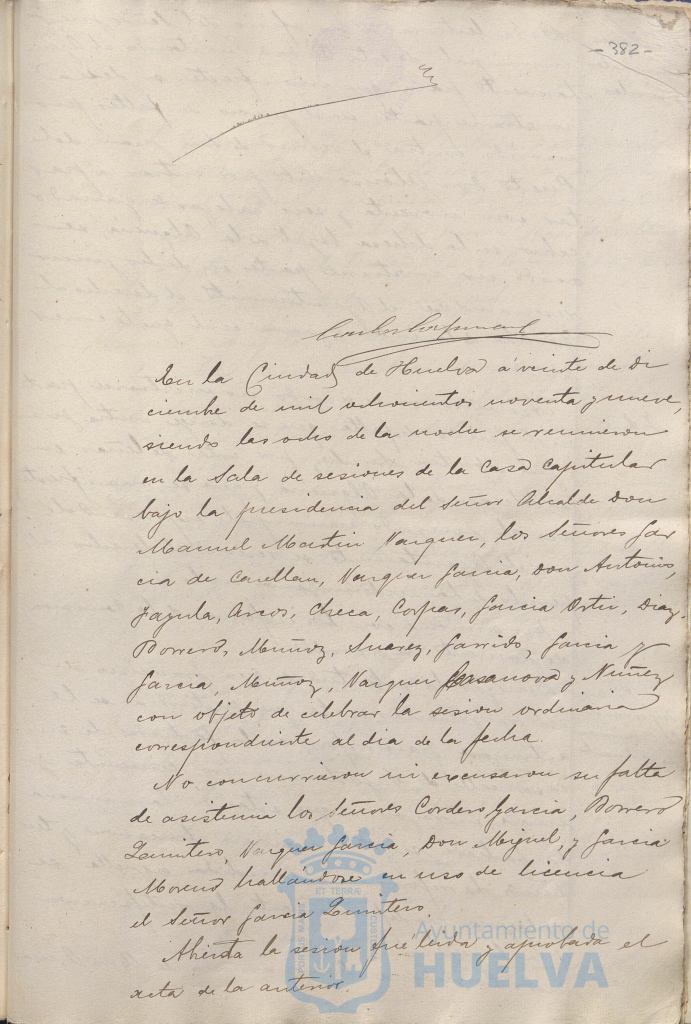 -382-
En la Ciudad de Huelva á veinte de di
ciembre de mil ochocientos noventa y nueve,
siendo las ocho de la noche se reunieron
en la Sala de sesiones de la Casa Capitular
bajo la presidencia del Señor Alcalde Don
Manuel Martin Vazquez, los Señores Gar
cia de Castellan, Vazquez Garcia, Don Antonio,
Arcos, Checa, Corpas, Garcia Ortiz, Diaz,
Borrero, Muñoz, Suarez, Garrido, Garcia y
Garcia, Muñoz, Vazquez Casanova y Nuñez
con objeto de celebrar la sesion ordinaria
correspondiente al dia de la fecha.
No concurrieron ni excusaron su falta
de asistencia los Señores Cordero Garcia, Borrero
Quintero, Vazquez Garcia, Don Miguel, y Garcia
Moreno hallándose en uso de licencia
el Señor Garcia Quintero
Abierta la sesion fue leida y aprobada el
acta de la anterior.
Ayuntamiento de
HUELVA